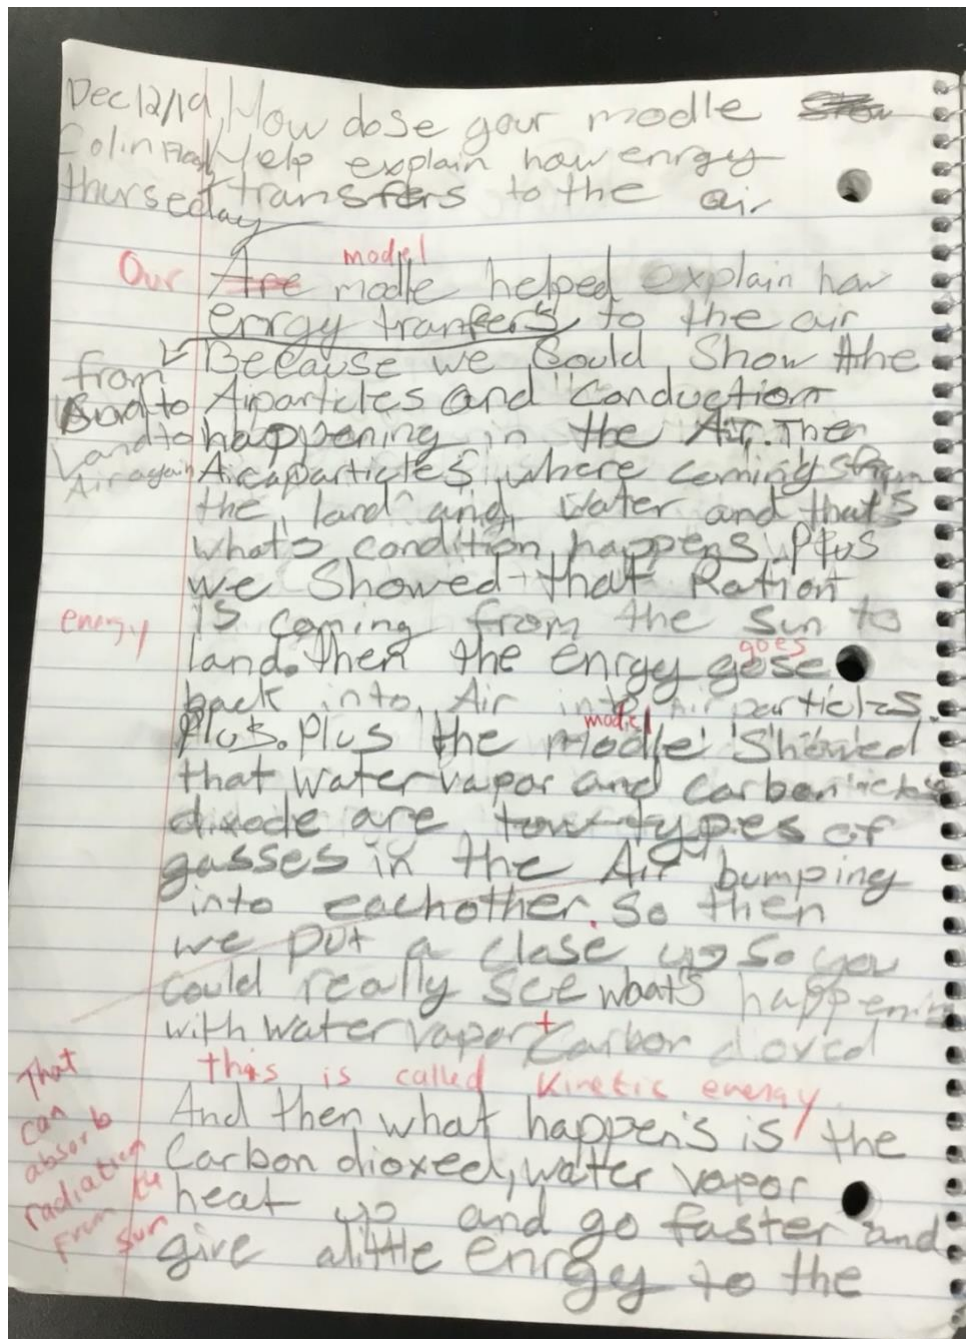 Dec 12/19 How dose your modle
Colin Help explain how enrgy
thurseday transfers to the air
model
Our Are modle helped explain how
enrgy tranfers to the air
Because we Could Show the
from
Airparticles and Conduction
Land to happening in the Air. The
Air again Airaparticles where coming from
the land and water and that's
whats condition happens. Plus
we Showed that Ration
energy is coming from the sun to
goes
land. then the enrgy gose
back into Air into Air particles.
model
Plus. Plus the modle Showed
that water vapor and carbon
dixode are tow types of
gasses in the Air bumping
into eachother. So then
we put a close up so you
could really see whats happening
with water vapor + Carbon dioxed
this is called Kinetic energy
And then what happen's is the
Carbon dioxed, water vapor
heat up and go faster and
give alittle enrgy to the
That
can
absorb
radiation
From the
sun